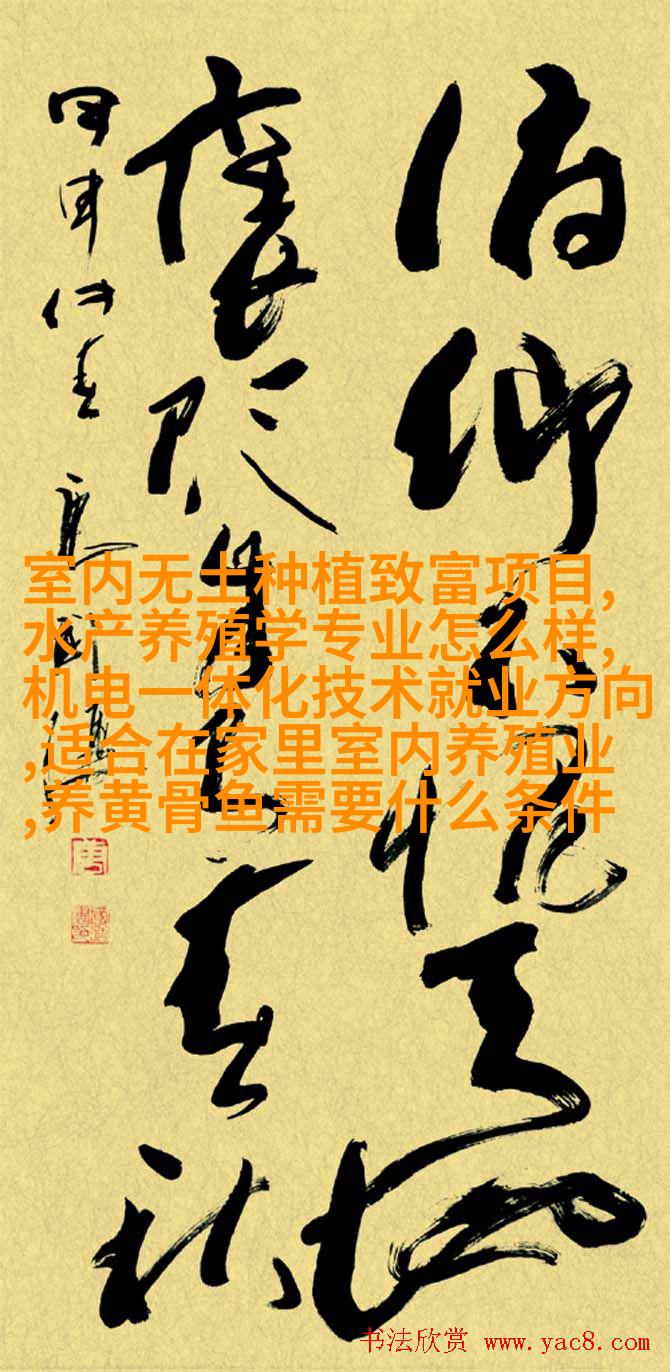 俯仰不愧天地
褒贬自有春秋
室内无土种植致富项目,
水产养殖学专业怎么样,
机电一体化技术就业方向
,适合在家里室内养殖业
,养黄骨鱼需要什么条件
书法欣赏 www.yac8.com